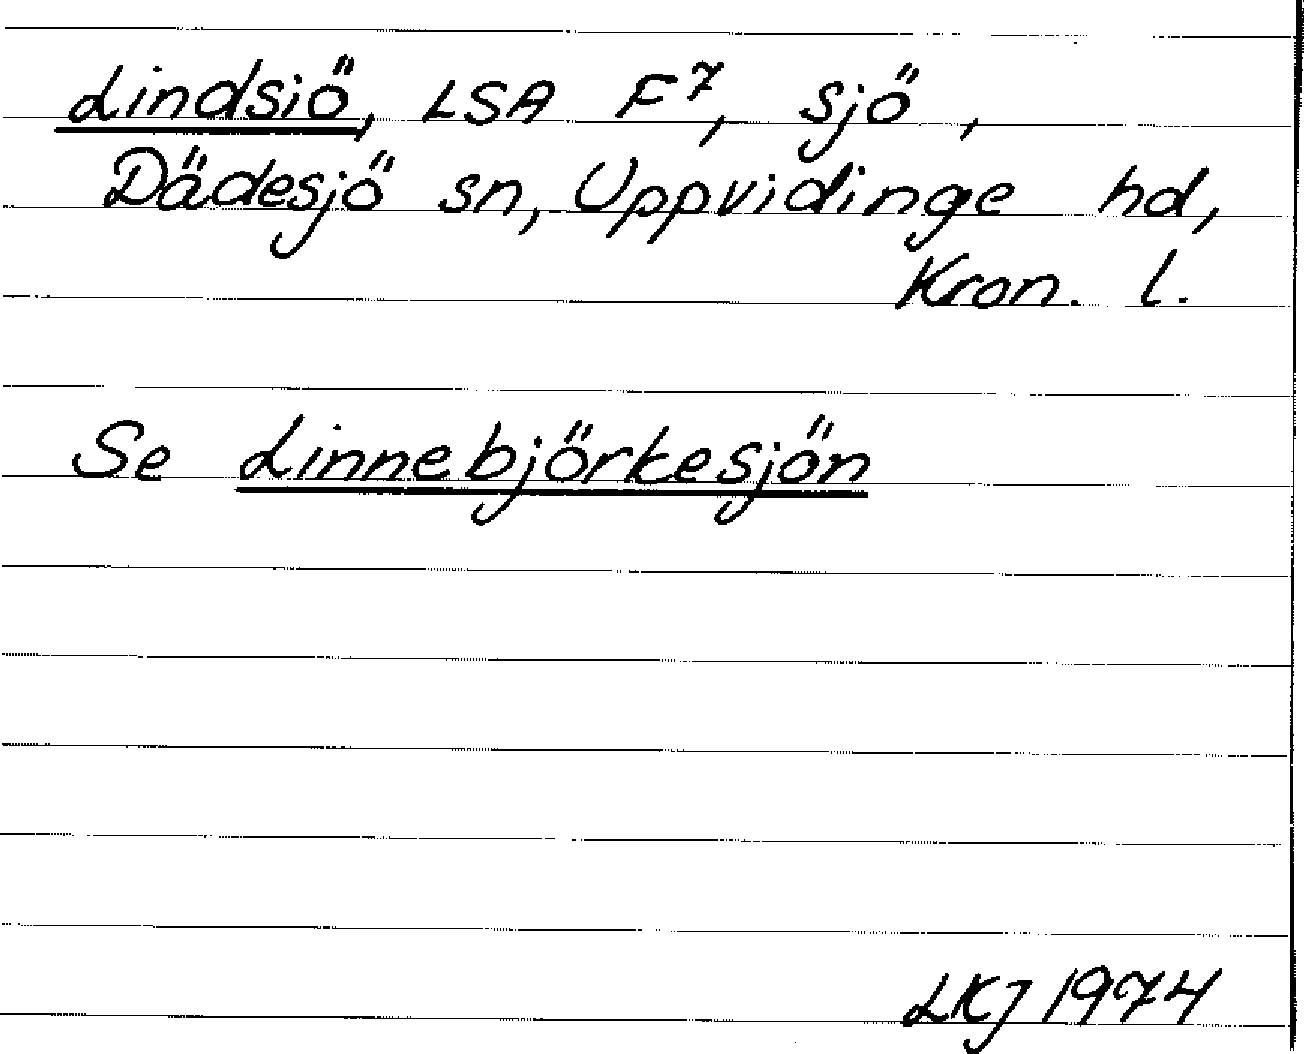 Lindsiö, LSA F⁷, sjö,
Dädesjö sn, Uppvidinge hd,
Kron. l.
Se Linnebjörkesjön
LKJ 1974